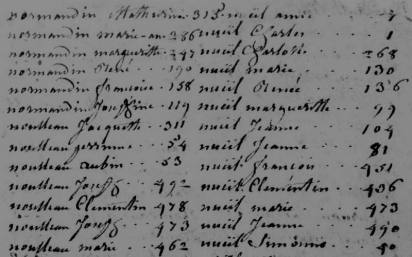 normandin Matherine 315 nuëil amie 7
normandin marie-an 286 nuëil Charles 1
normandin margueritte 247 nuëil Charlotte 268
normandin René 190 nuëil marie 130
normandin francoise 158 nuëil Renée 136
normandin Josephine 119 nuëil margueritte 99
noulleau Jacquette 311 nuëil Jeanne 104
noulleau perrinne 54 nuëil Jeanne 81
noulleau aubin 53 nuëil francois 451
noulleau Joseph 492 nuëil Clementin 436
noulleau Clementin 478 nuëil marie 473
noulleau Joseph 473 nuëil Jeanne 490
noulleau marie 462 nuëil Simonne 50